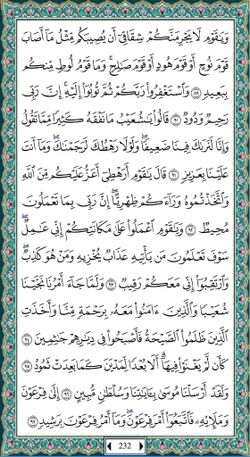 وَيَٰقَوْمِ لَا يَجْرِمَنَّكُمْ شِقَاقِىٓ أَن يُصِيبَكُم مِّثْلُ مَآ أَصَابَ
قَوْمَ نُوحٍ أَوْ قَوْمَ هُودٍ أَوْ قَوْمَ صَٰلِحٍ ۚ وَمَا قَوْمُ لُوطٍ مِّنكُم
بِبَعِيدٍ ٨٩ وَٱسْتَغْفِرُوا۟ رَبَّكُمْ ثُمَّ تُوبُوٓا۟ إِلَيْهِ ۚ إِنَّ رَبِّى
رَحِيمٌ وَدُودٌ ٩٠ قَالُوا۟ يَٰشُعَيْبُ مَا نَفْقَهُ كَثِيرًا مِّمَّا تَقُولُ
وَإِنَّا لَنَرَىٰكَ فِينَا ضَعِيفًا ۖ وَلَوْلَا رَهْطُكَ لَرَجَمْنَٰكَ ۖ وَمَآ أَنتَ
عَلَيْنَا بِعَزِيزٍ ٩١ قَالَ يَٰقَوْمِ أَرَهْطِىٓ أَعَزُّ عَلَيْكُم مِّنَ ٱللَّهِ
وَٱتَّخَذْتُمُوهُ وَرَآءَكُمْ ظِهْرِيًّا ۖ إِنَّ رَبِّى بِمَا تَعْمَلُونَ
مُحِيطٌ ٩٢ وَيَٰقَوْمِ ٱعْمَلُوا۟ عَلَىٰ مَكَانَتِكُمْ إِنِّى عَٰمِلٌ ۖ
سَوْفَ تَعْلَمُونَ مَن يَأْتِيهِ عَذَابٌ يُخْزِيهِ وَمَنْ هُوَ كَٰذِبٌ ۖ
وَٱرْتَقِبُوٓا۟ إِنِّى مَعَكُمْ رَقِيبٌ ٩٣ وَلَمَّا جَآءَ أَمْرُنَا نَجَّيْنَا
شُعَيْبًا وَٱلَّذِينَ ءَامَنُوا۟ مَعَهُۥ بِرَحْمَةٍ مِّنَّا وَأَخَذَتِ
ٱلَّذِينَ ظَلَمُوا۟ ٱلصَّيْحَةُ فَأَصْبَحُوا۟ فِى دِيَٰرِهِمْ جَٰثِمِينَ ٩٤
كَأَن لَّمْ يَغْنَوْا۟ فِيهَآ ۗ أَلَا بُعْدًا لِّمَدْيَنَ كَمَا بَعِدَتْ ثَمُودُ ٩٥
وَلَقَدْ أَرْسَلْنَا مُوسَىٰ بِـَٔايَٰتِنَا وَسُلْطَٰنٍ مُّبِينٍ ٩٦ إِلَىٰ فِرْعَوْنَ
وَمَلَإِي۟هِۦ فَٱتَّبَعُوٓا۟ أَمْرَ فِرْعَوْنَ ۖ وَمَآ أَمْرُ فِرْعَوْنَ بِرَشِيدٍ ٩٧
232